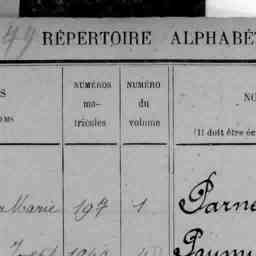 49 RÉPERTOIRE ALPHABÉ
S
OMS
NUMÉROS
ma-
tricules
NUMÉRO
du
volume
NO
(Il doit être éc
Marie 197 1 Parne